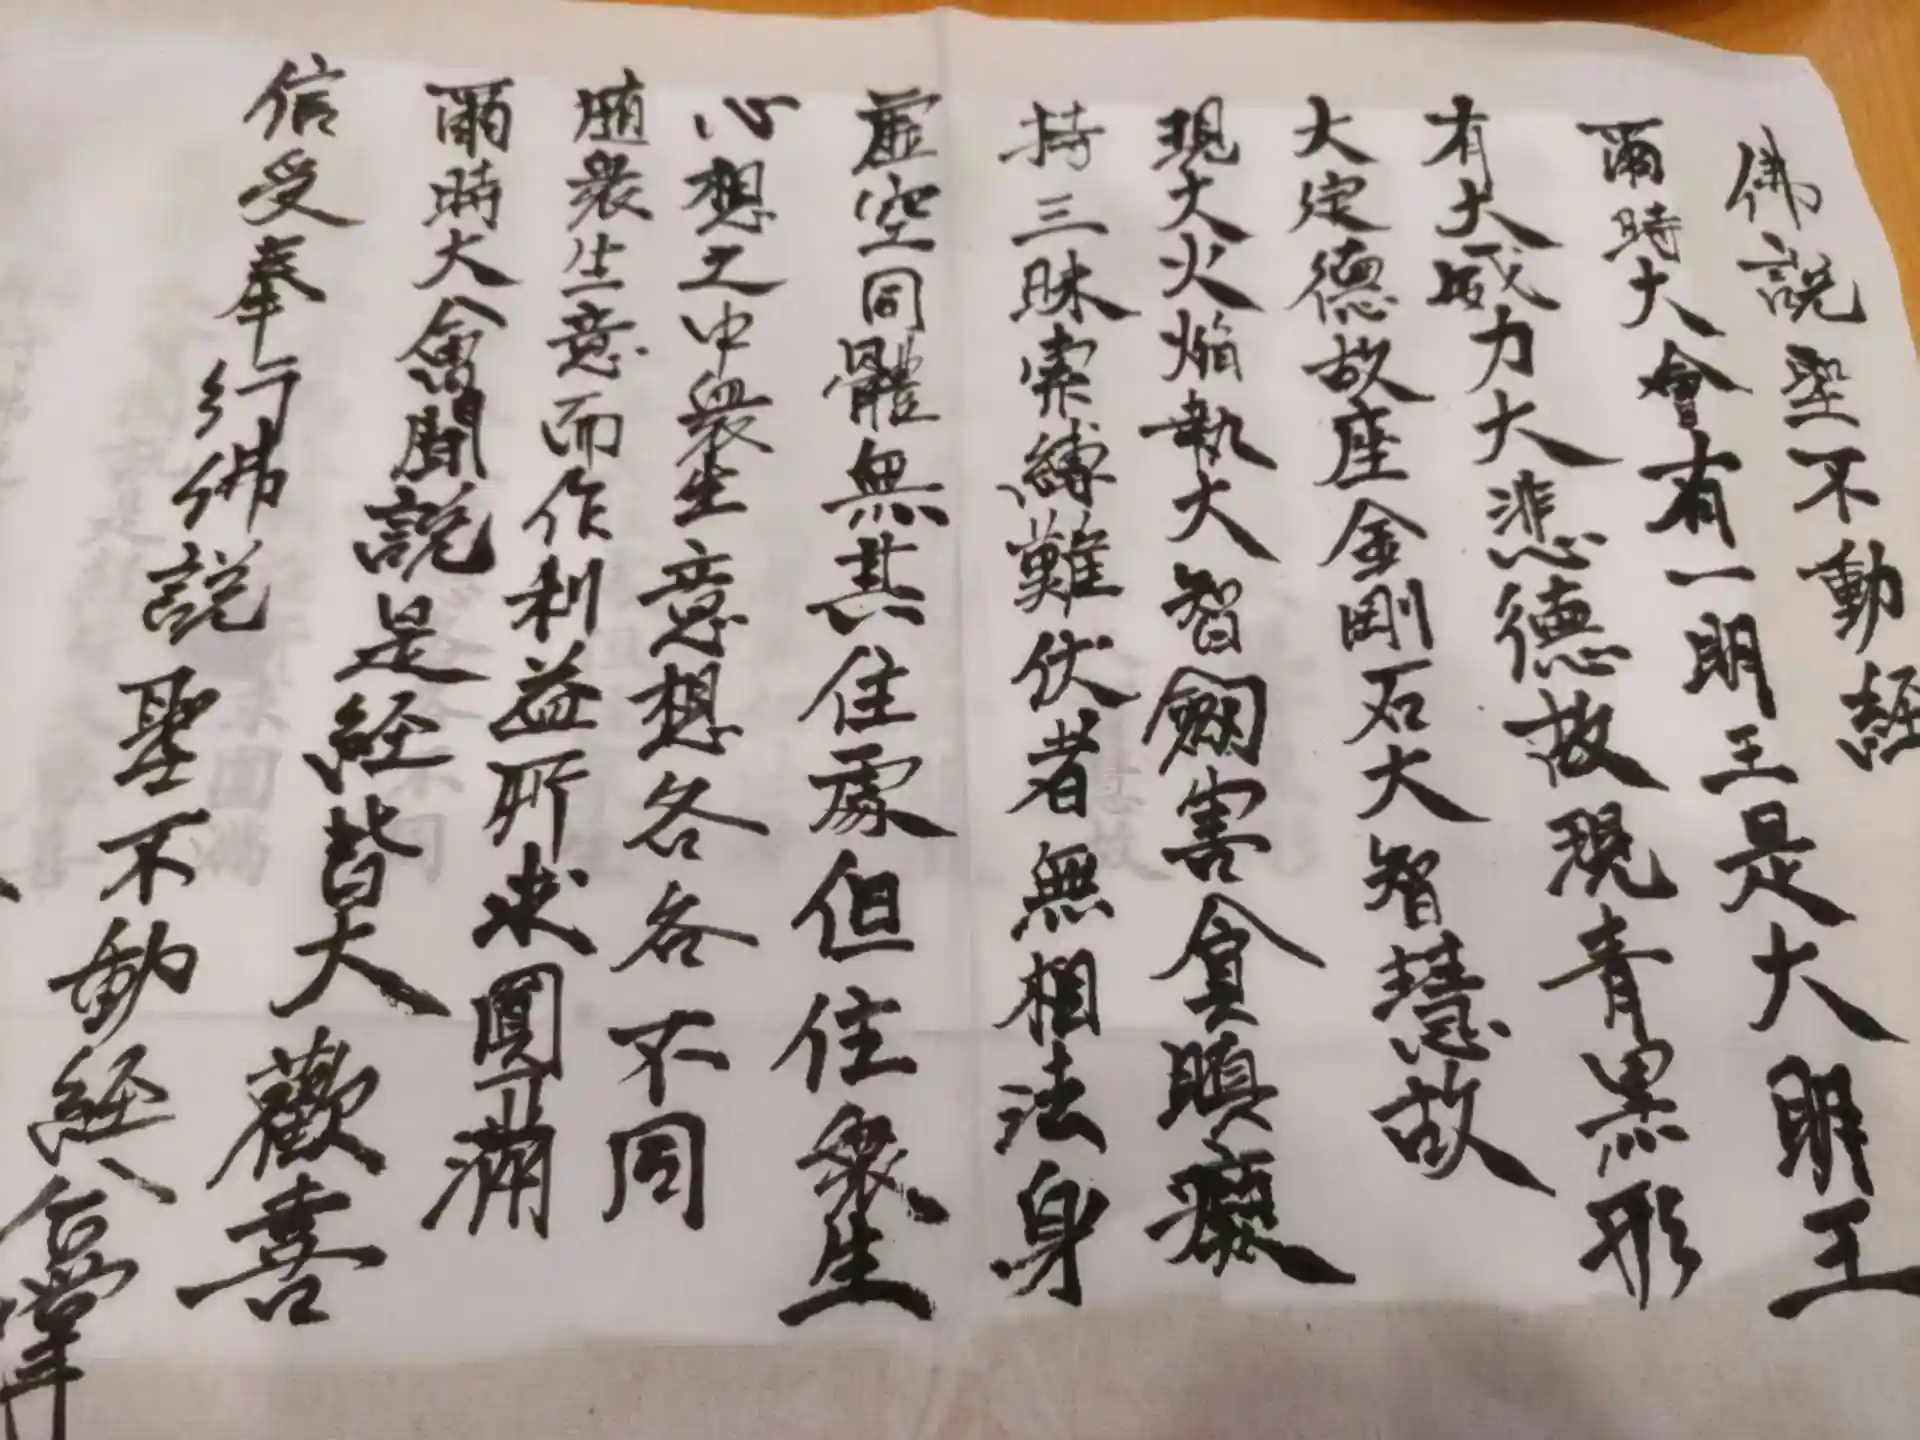 佛說聖不動經
爾時大會有一明王是大明王
有大威力大悲德故現青黑形
大定德故座金剛石大智慧故
現大火焔執大智劔害貪瞋癡
持三昧索縛難伏者無相法身
虛空同體無其住處但住衆生
心想之中衆生意想各各不同
随衆生意而作利益所求圓滿
爾時大會聞說是経皆大歡喜
信受奉行佛説聖不動経合掌